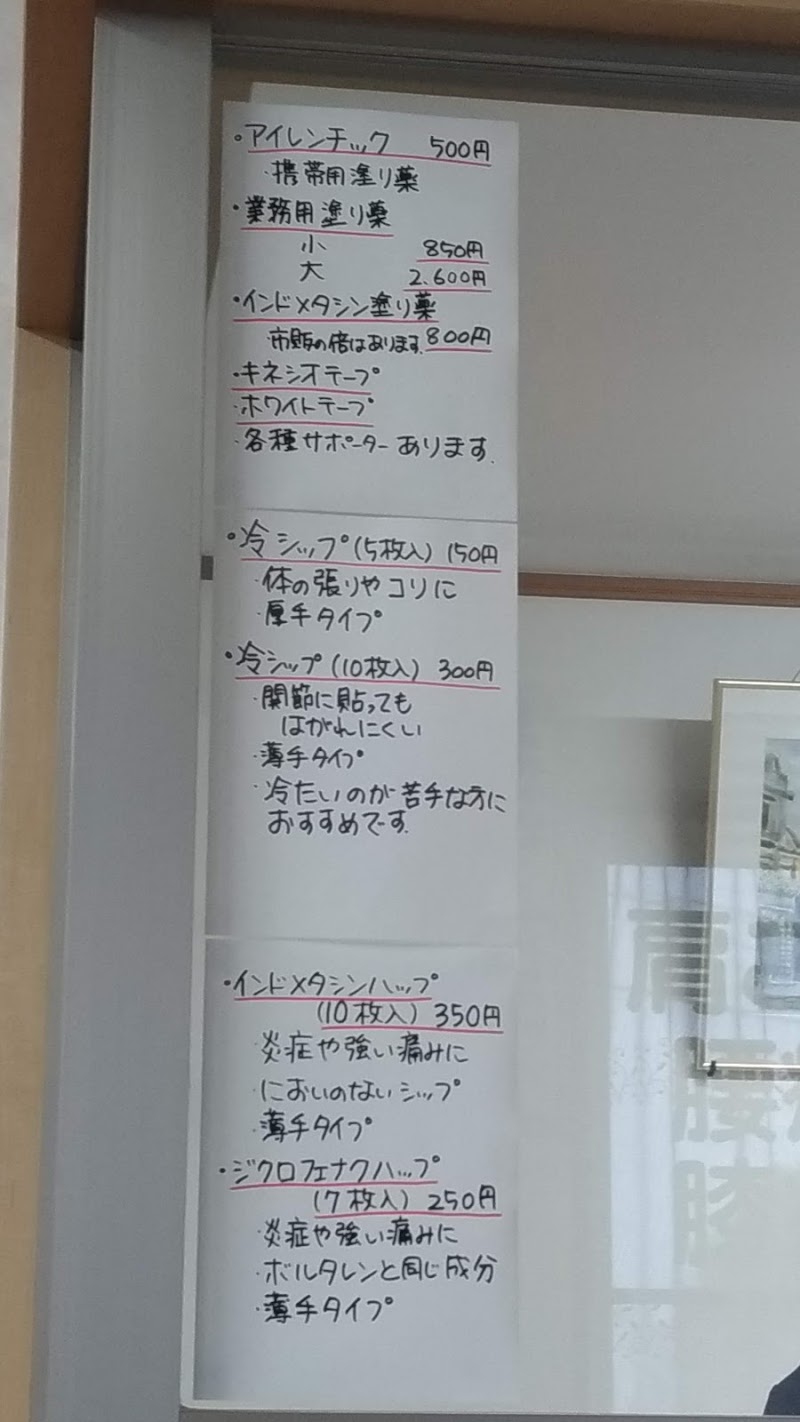 ・アイレンチック 500円
・携帯用塗り薬
・業務用塗り薬
小 850円
大 2.600円
・インドメタシン塗り薬
・市販の倍はあります。800円
・キネシオテープ
・ホワイトテープ
・各種サポーターあります。
・冷シップ(5枚入) 150円
・体の張りやコリに
・厚手タイプ
・冷シップ(10枚入) 300円
・関節に貼っても
はがれにくい
・薄手タイプ
・冷たいのが苦手な方に
おすすめです。
・インドメタシンハップ
(10枚入) 350円
・炎症や強い痛みに
・においのないシップ
・薄手タイプ
・ジクロフェナクハップ
(7枚入) 250円
・炎症や強い痛みに
・ボルタレンと同じ成分
・薄手タイプ
肩こ
腰
膝